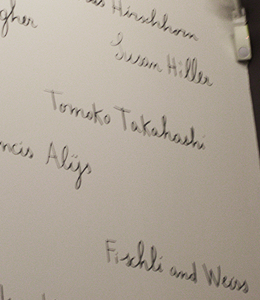 Hirschhorn
Susan Hiller
Tomoko Takahashi
Alÿs
Fischli and Weiss